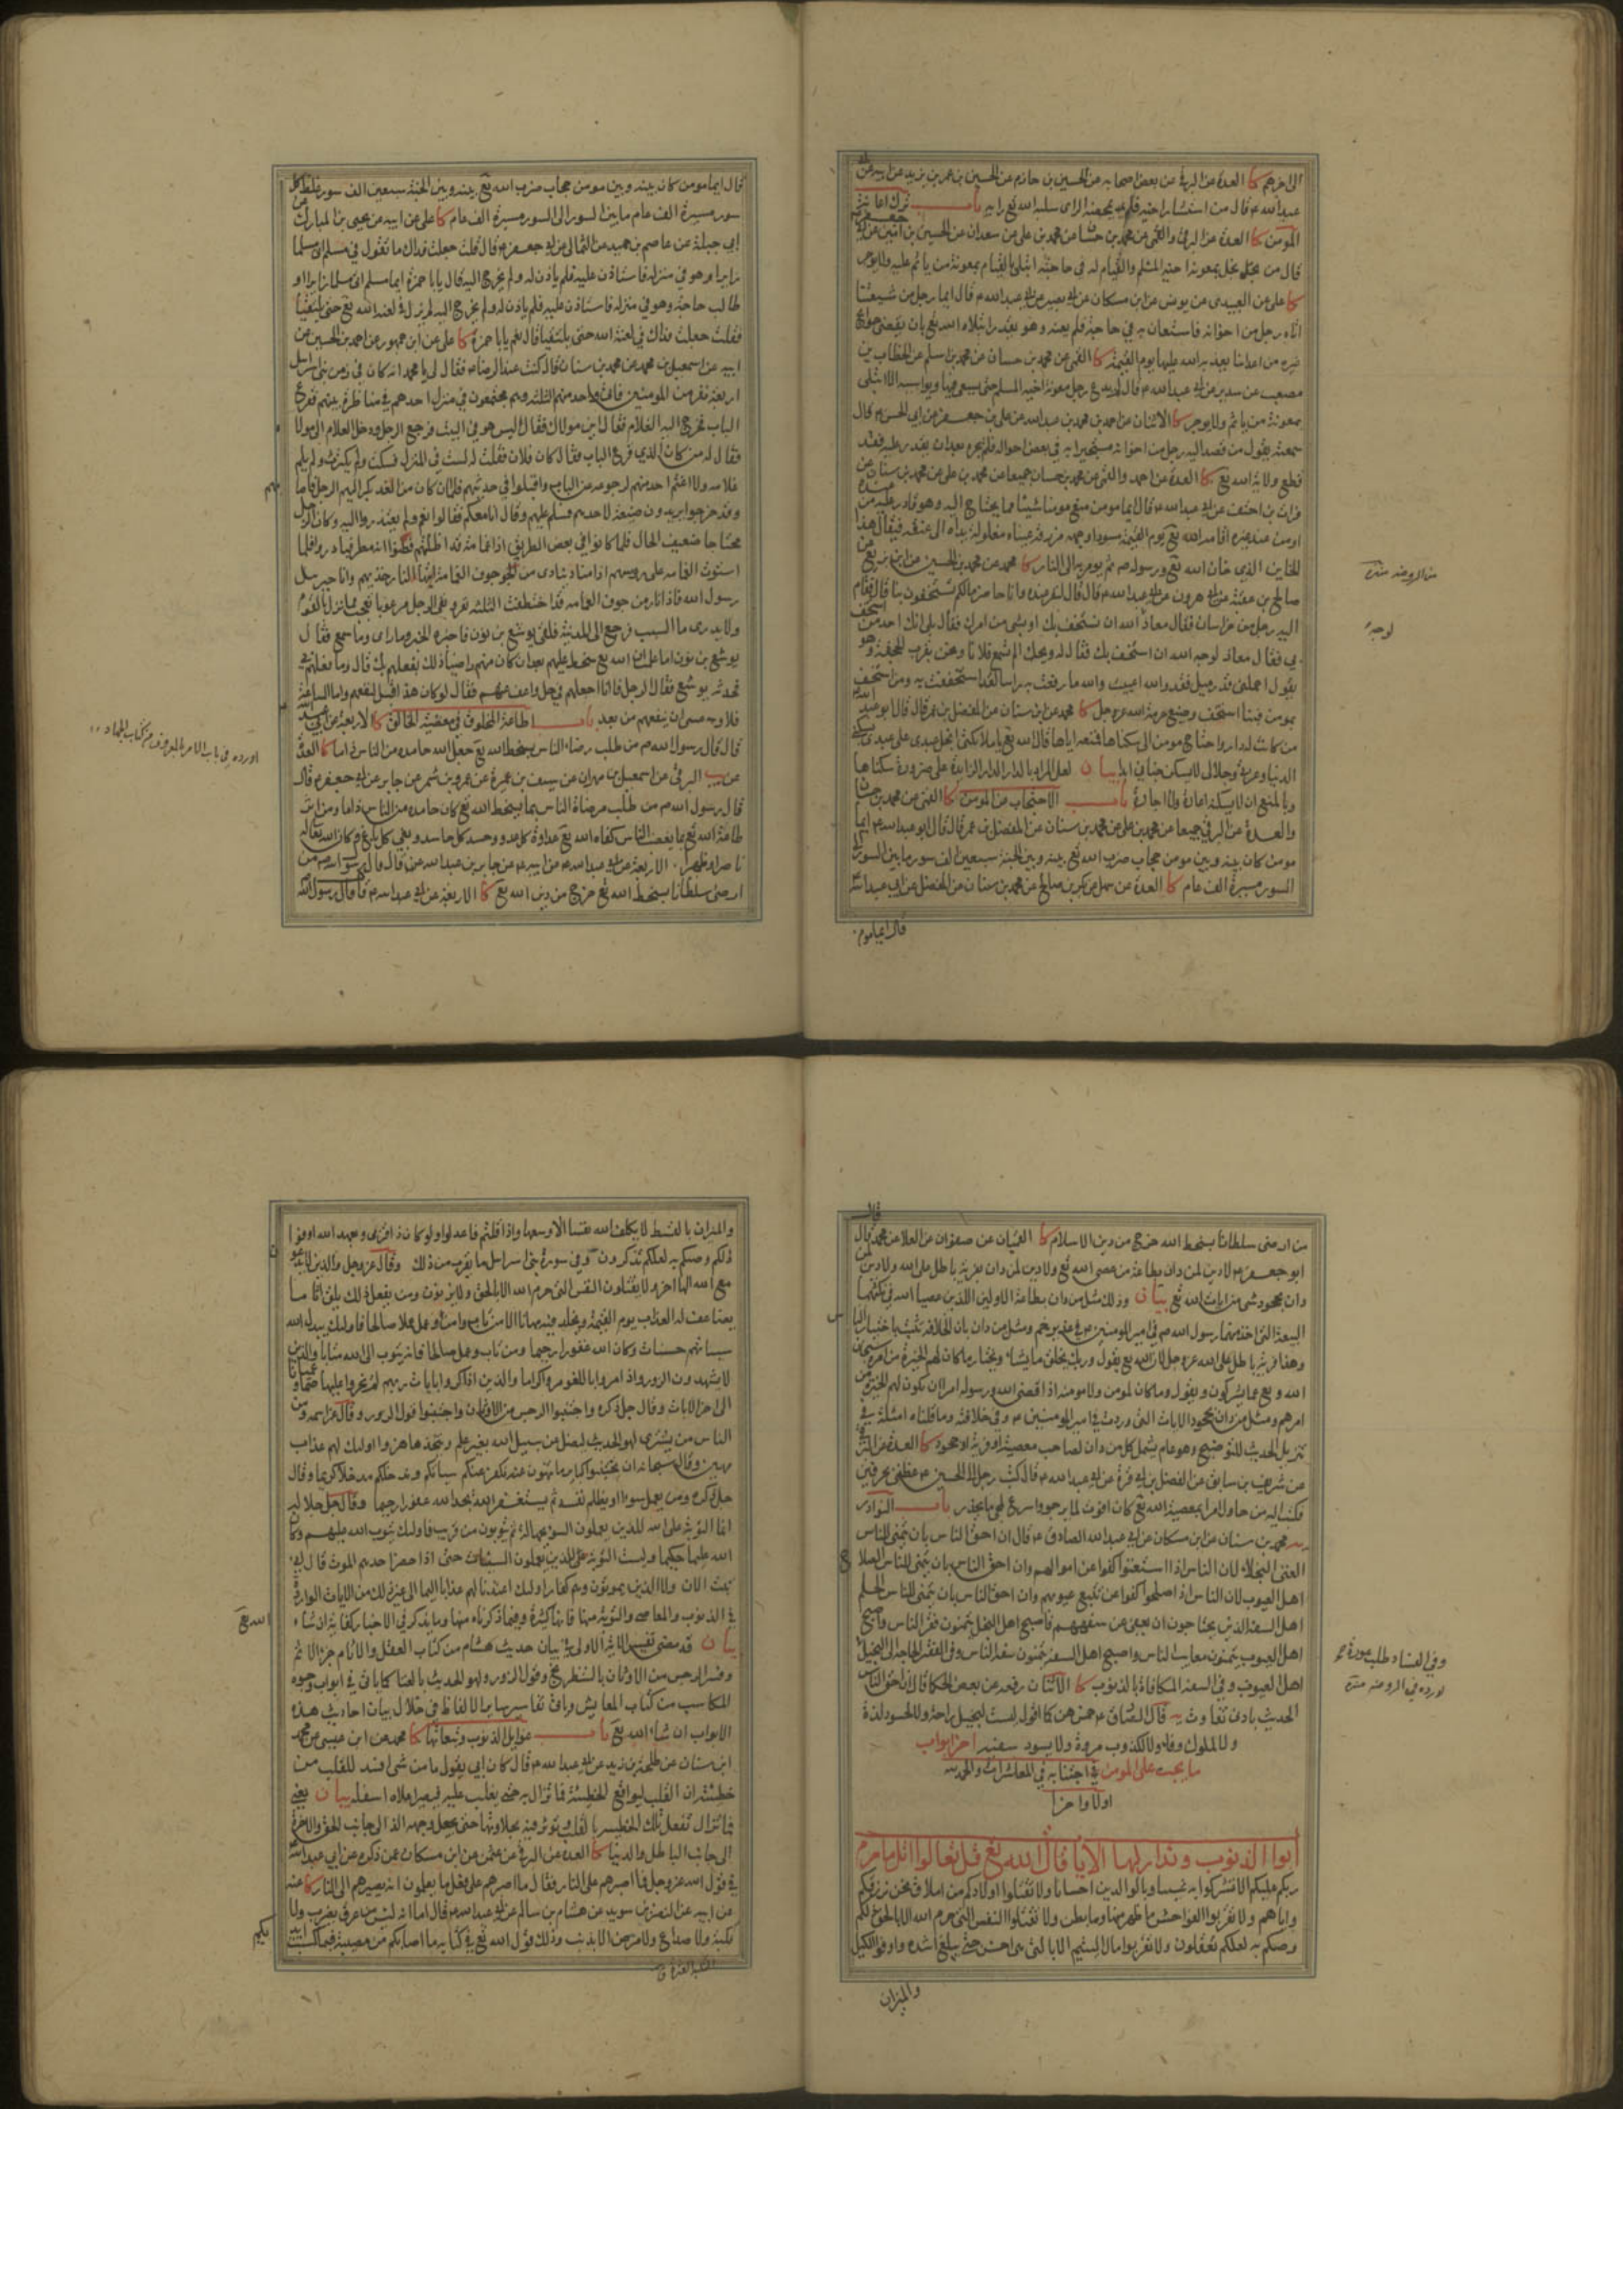 الى اخرهم كا العدة عن البرقي عن بعض اصحابه عن الحسين بن حازم عن الحسين بن عمر بن يزيد عن ابيه عن
عبدالله ع قال من استشار اخيه فلم يمحضه الراى سلبه الله تع رايه باب ترك اعانة
المؤمن كا العدة عن البرقي والقمي عن محمد بن حسان عن محمد بن علي عن سعدان عن الحسين بن امين عن ابي جعفر ع
قال من بخل بمعونة اخيه المسلم والقيام له في حاجته ابتلى بالقيام بمعونة من ياثم عليه ولا يوجر
كا علي عن العبيدي عن يونس عن ابن مسكان عن ابي بصير عن ابي عبدالله ع قال ايما رجل من شيعتنا
اتاه رجل من اخوانه فاستعان به في حاجة فلم يعنه وهو يقدر ابتلاه الله تع بان يقضي حوائج
غيره من اعدائنا يعذبه الله عليها يوم القيمة كا القمي عن محمد بن حسان عن محمد بن اسلم عن الخطاب بن
مصعب عن سدير عن ابي عبدالله ع قال لم يدع رجل معونة اخيه المسلم حتى يسعى فيها ويواسيه الا ابتلى
بمعونة من ياثم ولا يوجر كا الاثنان عن احمد بن محمد بن عبدالله عن علي بن جعفر عن ابي الحسن ع قال
سمعته يقول من قصد اليه رجل من اخوانه مستجيرا به في بعض احواله فلم يجره بعد ان يقدر عليه فقد
قطع ولاية الله تع كا العدة عن احمد والقمي عن محمد بن حسان جميعا عن محمد بن علي عن محمد بن سنان عن
فرات بن احنف عن ابي عبدالله ع قال ايما مومن منع مومنا شيئا مما يحتاج اليه وهو يقدر عليه من عنده
او من عند غيره اقامه الله تع يوم القيمة مسودا وجهه مزرقة عيناه مغلولة يداه الى عنقه فيقال هذا
الخاين الذي خان الله تع ورسوله ص ثم يومر به الى النار كا محمد عن محمد بن الحسين عن ابن بزيع عن
صالح بن عقبة عن ابي هرون عن ابي عبدالله ع قال قال لنفر عنده وانا حاضر مالكم تستخفون بنا قال فقام
اليه رجل من خراسان فقال معاذ الله ان نستخف بك او بشي من امرك فقال بلى انك احد من استخف
بي فقال معاذ لوجه الله ان استخف بك فقال له ويحك الم تسمع فلانا ونحن بقرب الجحفة وهو
يقول احملني قدر ميل فقد والله اعييت والله ما رفعت به راسا لقد استخففت به ومن استخف
بمومن فبنا استخف وضيع حرمة الله عز وجل كا محمد عن ابن سنان عن المفضل بن عمر قال قال ابو عبدالله ع
من كانت له دار واحتاج مومن الى سكناها فمنعه اياها قال الله تع يا ملائكتي ابخل عبدي على عبدي بسكنى
الدنيا وعزتي وجلالي لا يسكن جناني ابدا بيان لعل المراد بالدار الدار الزايدة على ضرورة سكناها
وبالمنع ان لا يسكنه اعارة ولا اجارة باب الاحتجاب عن المومن كا القمي عن محمد بن حسان
والعدة عن البرقي جميعا عن محمد بن علي عن محمد بن سنان عن المفضل بن عمر قال قال ابو عبدالله ع ايما
مومن كان بينه وبين مومن حجاب ضرب الله تع بينه وبين الجنة سبعين الف سور ما بين السور الى
السور مسيرة الف عام كا العدة عن سهل عن بكر بن صالح عن محمد بن سنان عن المفضل عن ابي عبدالله ع
قال ايما مومن
لوجه
قال ايما مومن كان بينه وبين مومن حجاب ضرب الله تع بينه وبين الجنة سبعين الف سور غلظ كل
سور مسيرة الف عام ما بين السور الى السور مسيرة الف عام كا علي عن ابيه عن يحيى بن المبارك عن
ابن جبلة عن عاصم بن حميد عن الثمالي عن ابي جعفر ع قال قلت جعلت فداك ما تقول في مسلم اتى مسلما
زايرا وهو في منزله فاستاذن عليه فلم ياذن له ولم يخرج اليه قال يا با حمزة ايما مسلم اتى مسلما زايرا او
طالب حاجة وهو في منزله فاستاذن عليه فلم ياذن له ولم يخرج اليه لم يزل في لعنة الله تع حتى يلتقيا
فقلت جعلت فداك في لعنة الله حتى يلتقيا قال نعم يا با حمزة كا علي عن ابن جمهور عن احمد بن الحسين عن
ابيه عن اسمعيل بن محمد عن محمد بن سنان قال كنت عند الرضا ع فقال لي يا محمد انه كان في زمن بني اسرائيل
اربعة نفر من المومنين فاتى واحد منهم الثلثة وهم مجتمعون في منزل احدهم في مناظرة بينهم فقرع
الباب فخرج اليه الغلام فقال اين مولاك فقال ليس هو في البيت فرجع الرجل ودخل الغلام الى مولاه
فقال له من كان الذي قرع الباب فقال كان فلان فقلت له لست في المنزل فسكت ولم يكترث ولم يلم
غلامه ولا اغتم احد منهم لرجوعه عن الباب واقبلوا في حديثهم فلما ان كان من الغد بكر اليهم الرجل فاصابهم
وقد خرجوا يريدون ضيعة لاحدهم فسلم عليهم وقال انا معكم فقالوا نعم ولم يعتذروا اليه وكان الرجل
محتاجا ضعيف الحال فلما كانوا في بعض الطريق اذا غمامة قد اظلتهم فظنوا انه مطر فبادروا فلما
استوت الغمامة على روسهم اذا مناد ينادى من جوف الغمامة ايتها النار خذيهم وانا جبرئيل
رسول الله فاذا نار من جوف الغمامة قد اختطفت الثلثة نفر وبقي الرجل مرعوبا يعجب مما نزل بالقوم
ولا يدرى ما السبب فرجع الى المدينة فلقي يوشع بن نون فاخبره الخبر وما راى وما سمع فقال
يوشع بن نون اما علمت ان الله تع سخط عليهم بعد ان كان عنهم راضيا وذلك بفعلهم بك قال وما فعلهم بي
فحدثه يوشع فقال الرجل فانا اجعلهم في حل واعفو عنهم فقال لو كان هذا قبل لنفعهم واما الساعة
فلا وعسى ان ينفعهم من بعد باب اطاعة المخلوق في معصية الخالق كا الاربعة عن ابي عبدالله ع
قال قال رسول الله ص من طلب رضاء الناس بسخط الله تع جعل الله حامده من الناس ذاما كا العدة
عن البرقي عن اسمعيل بن مهران عن سيف بن عميرة عن عمرو بن شمر عن جابر عن ابي جعفر ع قال
قال رسول الله ص من طلب مرضاة الناس بما يسخط الله تع كان حامده من الناس ذاما ومن اثر
طاعة الله تع بما يغضب الناس كفاه الله تع عداوة كل عدو وحسد كل حاسد وبغي كل باغ وكان الله تعالى
ناصرا وظهيرا الاربعة عن ابي عبدالله ع عن ابيه ع عن جابر بن عبدالله قال قال رسول الله ص من
ارضى سلطانا بسخط الله تع خرج من دين الله تع كا الاربعة عن ابي عبدالله ع قال قال رسول الله
اورده في باب الامر بالمعروف من كتاب الجهاد
من ارضى سلطانا بسخط الله خرج من دين الاسلام كا القميان عن صفوان عن العلا عن محمد قال قال
ابو جعفر ع لا دين لمن دان بطاعة من عصى الله تع ولا دين لمن دان بفرية باطل على الله ولا دين لمن
دان بجحود شي من ايات الله تع بيان وذلك مثل من دان بطاعة الاولين اللذين عصيا الله في نكثهما
البيعة التي اخذ منهما رسول الله ص في امير المومنين ع في غدير خم ومثل من دان بان الخلافة تثبت باختيار الناس
وهذا فرية باطل على الله عز وجل لان الله تع يقول وربك يخلق ما يشاء ويختار ما كان لهم الخيرة من امرهم سبحان
الله وتع عما يشركون ويقول وما كان لمومن ولا مومنة اذا قضى الله ورسوله امرا ان يكون لهم الخيرة من
امرهم ومثل من دان بجحود الايات التي وردت في امير المومنين ع وفي خلافته وما قلناه امثلة في
تنزيل الحديث للتوضيح وهو عام يشمل كل من دان لصاحب معصية او فرية او جحود كا العدة عن البرقي
عن شريف بن سابق عن الفضل بن ابي قرة عن ابي عبدالله ع قال كتب رجل الى الحسين ع عظني بحرفين
فكتب اليه من حاول امرا بمعصية الله تع كان افوت لما يرجو واسرع لمجي ما يحذر باب النوادر
يه محمد بن سنان عن ابن مسكان عن ابي عبدالله الصادق ع قال ان احق الناس بان يتمنى للناس
الغنى البخلاء لان الناس اذا استغنوا كفوا عن اموالهم وان احق الناس بان يتمنى للناس الصلاح
اهل العيوب لان الناس اذا صلحوا كفوا عن تتبع عيوبهم وان احق الناس بان يتمنى للناس الحلم
اهل السفه الذين يحتاجون ان يعفى عن سفههم فاصبح اهل البخل يتمنون فقر الناس واصبح
اهل العيوب يتمنون معايب الناس واصبح اهل السفه يتمنون سفه الناس وفي الفقر الحاجة الى البخيل
اهل العيوب وفي السفه المكافاة بالذنوب كا الاثنان رفعه عن بعض الحكما قال ان احق الناس
الحديث بادنى تفاوت يه قال الصادق ع خمس هن كما اقول ليست لبخيل راحة ولا لحسود لذة
ولا لملوك وفاء ولا لكذوب مروة ولا يسود سفيه اخر ابواب
ما يجب على المومن اجتنابه في المعاشرات والحمد لله
اولا واخرا
ابواب الذنوب وتداركها الايات قال الله تع قل تعالوا اتل ما حرم
ربكم عليكم الا تشركوا به شيئا وبالوالدين احسانا ولا تقتلوا اولادكم من املاق نحن نرزقكم
واياهم ولا تقربوا الفواحش ما ظهر منها وما بطن ولا تقتلوا النفس التي حرم الله الا بالحق ذلكم
وصيكم به لعلكم تعقلون ولا تقربوا مال اليتيم الا بالتي هي احسن حتى يبلغ اشده واوفوا الكيل
والميزان
وفي الفساد طلب عورة
والميزان بالقسط لا يكلف الله نفسا الا وسعها واذا قلتم فاعدلوا ولو كان ذا قربى وبعهد الله اوفوا
ذلكم وصيكم به لعلكم تذكرون وفي سورة بني اسرائيل ما يقرب من ذلك وقال عز وجل والذين لا يدعون
مع الله الها اخر ولا يقتلون النفس التي حرم الله الا بالحق ولا يزنون ومن يفعل ذلك يلق اثاما
يضاعف له العذاب يوم القيمة ويخلد فيه مهانا الا من تاب وامن وعمل عملا صالحا فاولئك يبدل الله
سيئاتهم حسنات وكان الله غفورا رحيما ومن تاب وعمل صالحا فانه يتوب الى الله متابا والذين
لا يشهدون الزور واذا مروا باللغو مروا كراما والذين اذا ذكروا بايات ربهم لم يخروا عليها صما وعميانا
الى اخر الايات وقال جل ذكره واجتنبوا الرجس من الاوثان واجتنبوا قول الزور وقال عز اسمه ومن
الناس من يشترى لهو الحديث ليضل عن سبيل الله بغير علم ويتخذها هزوا اولئك لهم عذاب
مهين وقال سبحانه ان تجتنبوا كبائر ما تنهون عنه نكفر عنكم سيئاتكم وندخلكم مدخلا كريما وقال
جل ذكره ومن يعمل سوءا او يظلم نفسه ثم يستغفر الله يجد الله غفورا رحيما وقال جل جلاله
انما التوبة على الله للذين يعملون السوء بجهالة ثم يتوبون من قريب فاولئك يتوب الله عليهم وكان
الله عليما حكيما وليست التوبة للذين يعملون السيئات حتى اذا حضر احدهم الموت قال اني
تبت الان ولا الذين يموتون وهم كفار اولئك اعتدنا لهم عذابا اليما الى غير ذلك من الايات الواردة
في الذنوب والمعاصي والتوبة منها فانها كثيرة وفيما ذكرناه منها وما يذكر في الاخبار كفاية ان شاء الله تع
بيان قد مضى تفسير الاية الاولى في بيان حديث هشام من كتاب العقل والاثام جزاء الاثم
وفسر الرجس من الاوثان بالشطرنج وقول الزور ولهو الحديث بالغنا كما ياتي في ابواب وجوه
المكاسب من كتاب المعايش وياتي تفاسير ساير الالفاظ في خلال بيان احاديث هذه
الابواب ان شاء الله تع باب غوايل الذنوب وتبعاتها كا محمد عن ابن عيسى عن محمد
ابن سنان عن طلحة بن زيد عن ابي عبدالله ع قال كان ابي يقول ما من شي افسد للقلب من
خطيئة ان القلب ليواقع الخطيئة فما تزال به حتى يغلب عليه فيصير اعلاه اسفله بيان يعني
فما تزال تفعل تلك الخطيئة بالقلب وتوثر فيه بحلاوتها حتى يجعل وجهه الذي الى جانب الحق والاخرة
الى جانب الباطل والدنيا كا العدة عن البرقي عن عثمن عن ابن مسكان عمن ذكره عن ابي عبدالله ع
في قول الله عز وجل فما اصبرهم على النار فقال ما اصبرهم على فعل ما يعلمون انه يصيرهم الى النار كا عنه
عن ابيه عن النضر بن سويد عن هشام بن سالم عن ابي عبدالله ع قال اما انه ليس من عرق يضرب ولا
نكبة ولا صداع ولا مرض الا بذنب وذلك قول الله تع في كتابه ما اصابكم من مصيبة فبما كسبت ايديكم